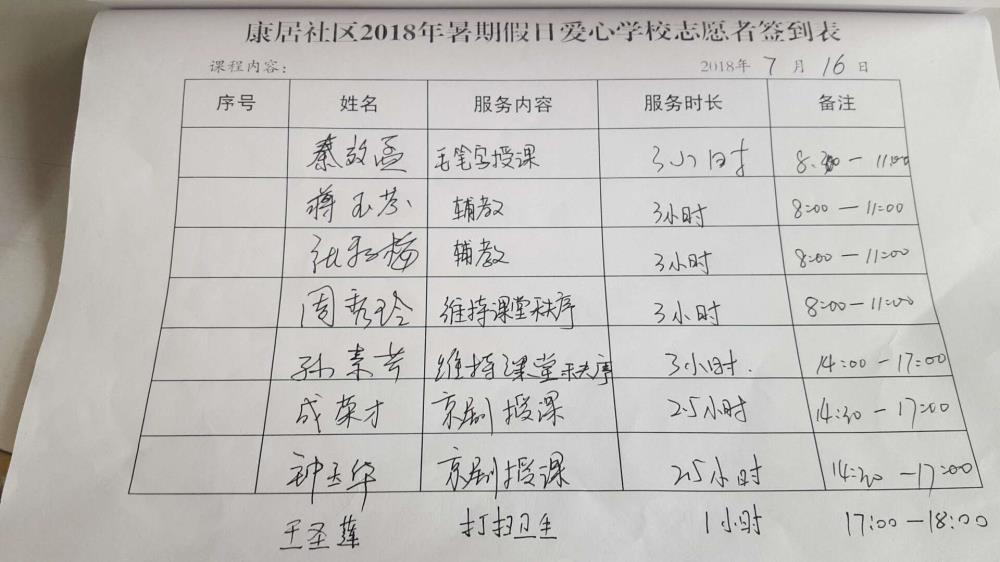 康居社区2018年暑期假日爱心学校志愿者签到表
课程内容: 2018年 7 月 16 日
序号 姓名 服务内容 服务时长 备注
秦效孟 毛笔字授课 3小时 8:30—11:00
蒋玉芬 辅教 3小时 8:00—11:00
梅 辅教 3小时 8:00—11:00
周秀玲 维持课堂秩序 3小时 8:00—11:00
孙素芳 维持课堂秩序 3小时. 14:00—17:00
成荣才 京剧授课 2.5小时 14:30—17:00
钟玉华 京剧授课 2.5小时 14:30—17:00
王圣莲 打扫卫生 1小时 17:00—18:00